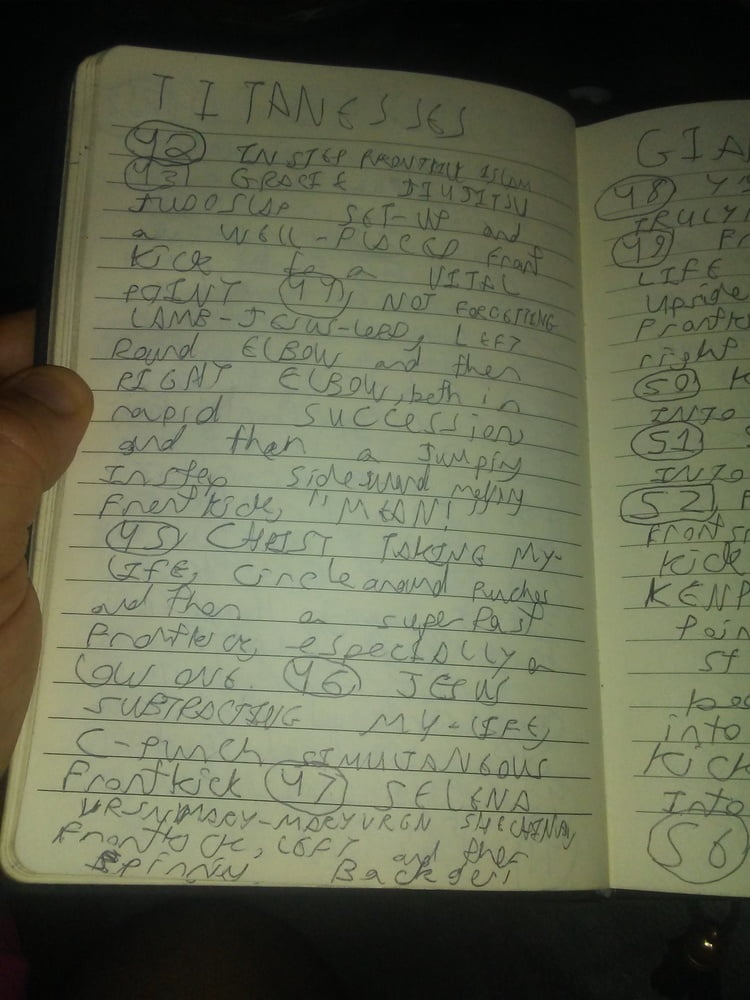 TITANESSES
42 INSTEP FRONTKICK ISLAM
43 GRACIE JIUJITSU
JUDOSLAP SET-UP and
a WELL-PLACED front
Kick to a VITAL
POINT 44, NOT FORGETTING
LAMB-JESUS-LORD, LEFT
Round ELBOW and then
RIGHT ELBOW, both in
rapid SUCCESSION
and then a Jumping
Instep sideward
Frontkick, "MEAN!"
45 CHRIST TAKING MY-
LIFE, circle around Punches
and then a super fast
Frontkick, especially a
LOW ONE. 46 JESUS
SUBTRACTING MY-LIFE,
C-Punch SIMULTANEOUS
Frontkick 47 SELENA
MARY-MARY VRGN SHECHINAH
Frontkick, LEFT and then
spinny Back
GIA
48
TRULY
49 Fr
LIFE
Upside
Frontk
right
50 K
INTO
51
INTO
52 F
Front
Kick
KENP
Poin
St
into
Kick
Into
56